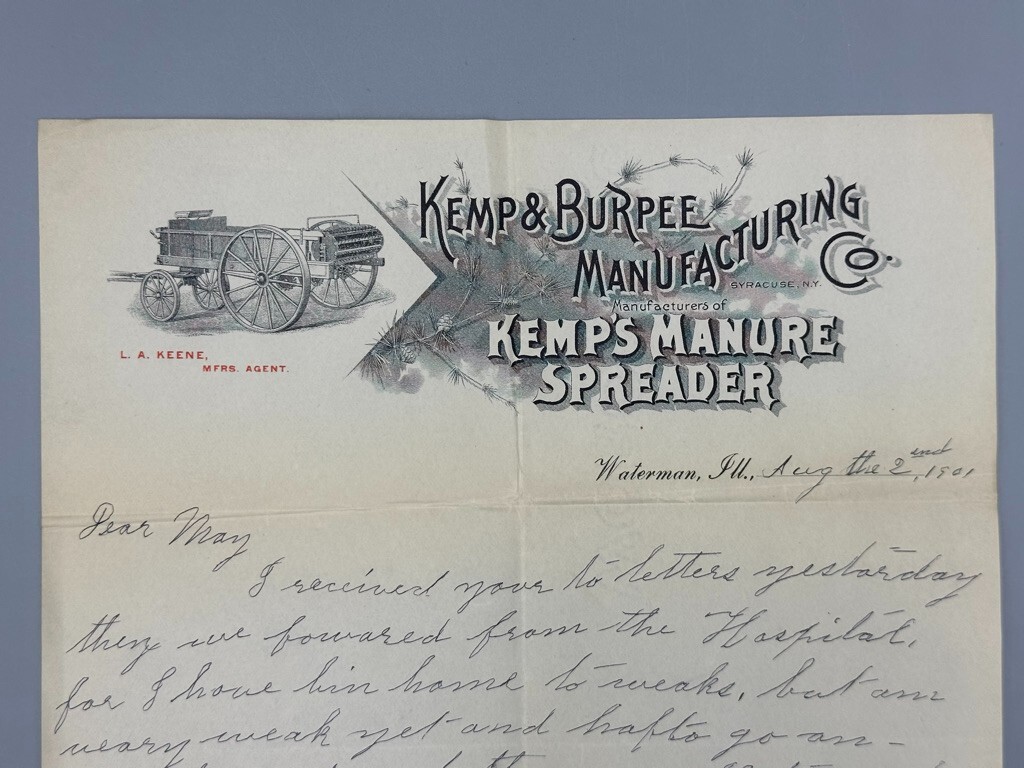 KEMP & BURPEE
MANUFACTURING CO.
SYRACUSE, N.Y.
Manufacturers of
KEMP'S MANURE
SPREADER
L. A. KEENE,
MFRS. AGENT.
Waterman, Ill., Aug the 2nd, 1901
Dear May
I received your to letters yesterday
they we fowared from the Hospital,
for I have bin home to weaks, but am
veary weak yet and hafto go on-